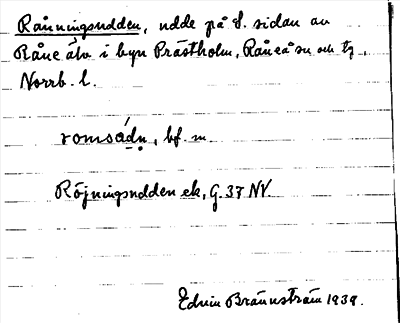 Rånningsudden, udde på S. sidan av
Råne älv i byn Prästholm, Råneå sn och tg,
Norrb. l.
romsádn̥, bf. m.
Röjningsudden ek, G. 37 NV.
Edvin Brännström 1939.